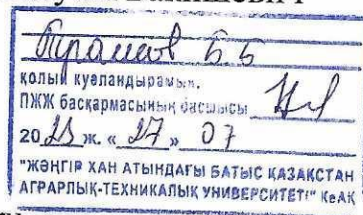 Б Б
қолын куәландырамын.
ПЖЖ басқармасының басшысы
2023 ж. «27» 07
"ЖӘҢГІР ХАН АТЫНДАҒЫ БАТЫС ҚАЗАҚСТАН
АГРАРЛЫҚ-ТЕХНИКАЛЫҚ УНИВЕРСИТЕТІ" КеАҚ